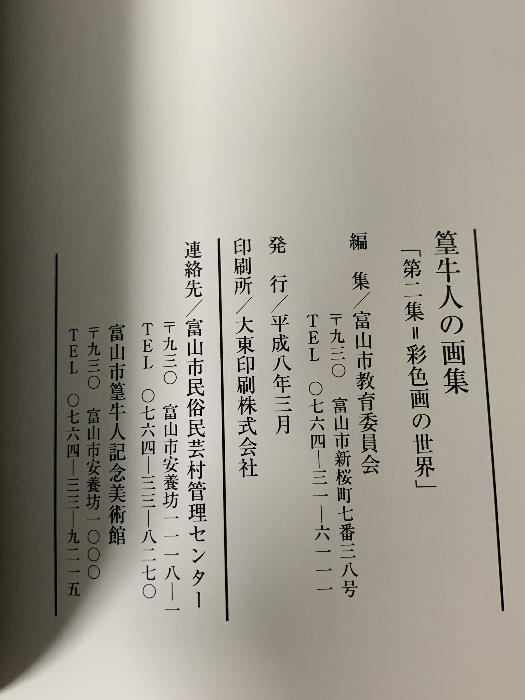 篁牛人の画集
「第二集＝彩色画の世界」
編　集／富山市教育委員会
〒九三〇　富山市新桜町七番三八号
TEL　〇七六四―三一―六一一一
発　行／平成八年三月
印刷所／大東印刷株式会社
連絡先／富山市民俗民芸村管理センター
〒九三〇　富山市安養坊一一一八―一
TEL　〇七六四―三三―八二七〇
富山市篁牛人記念美術館
〒九三〇　富山市安養坊一〇〇〇
TEL　〇七六四―三三―九二一五